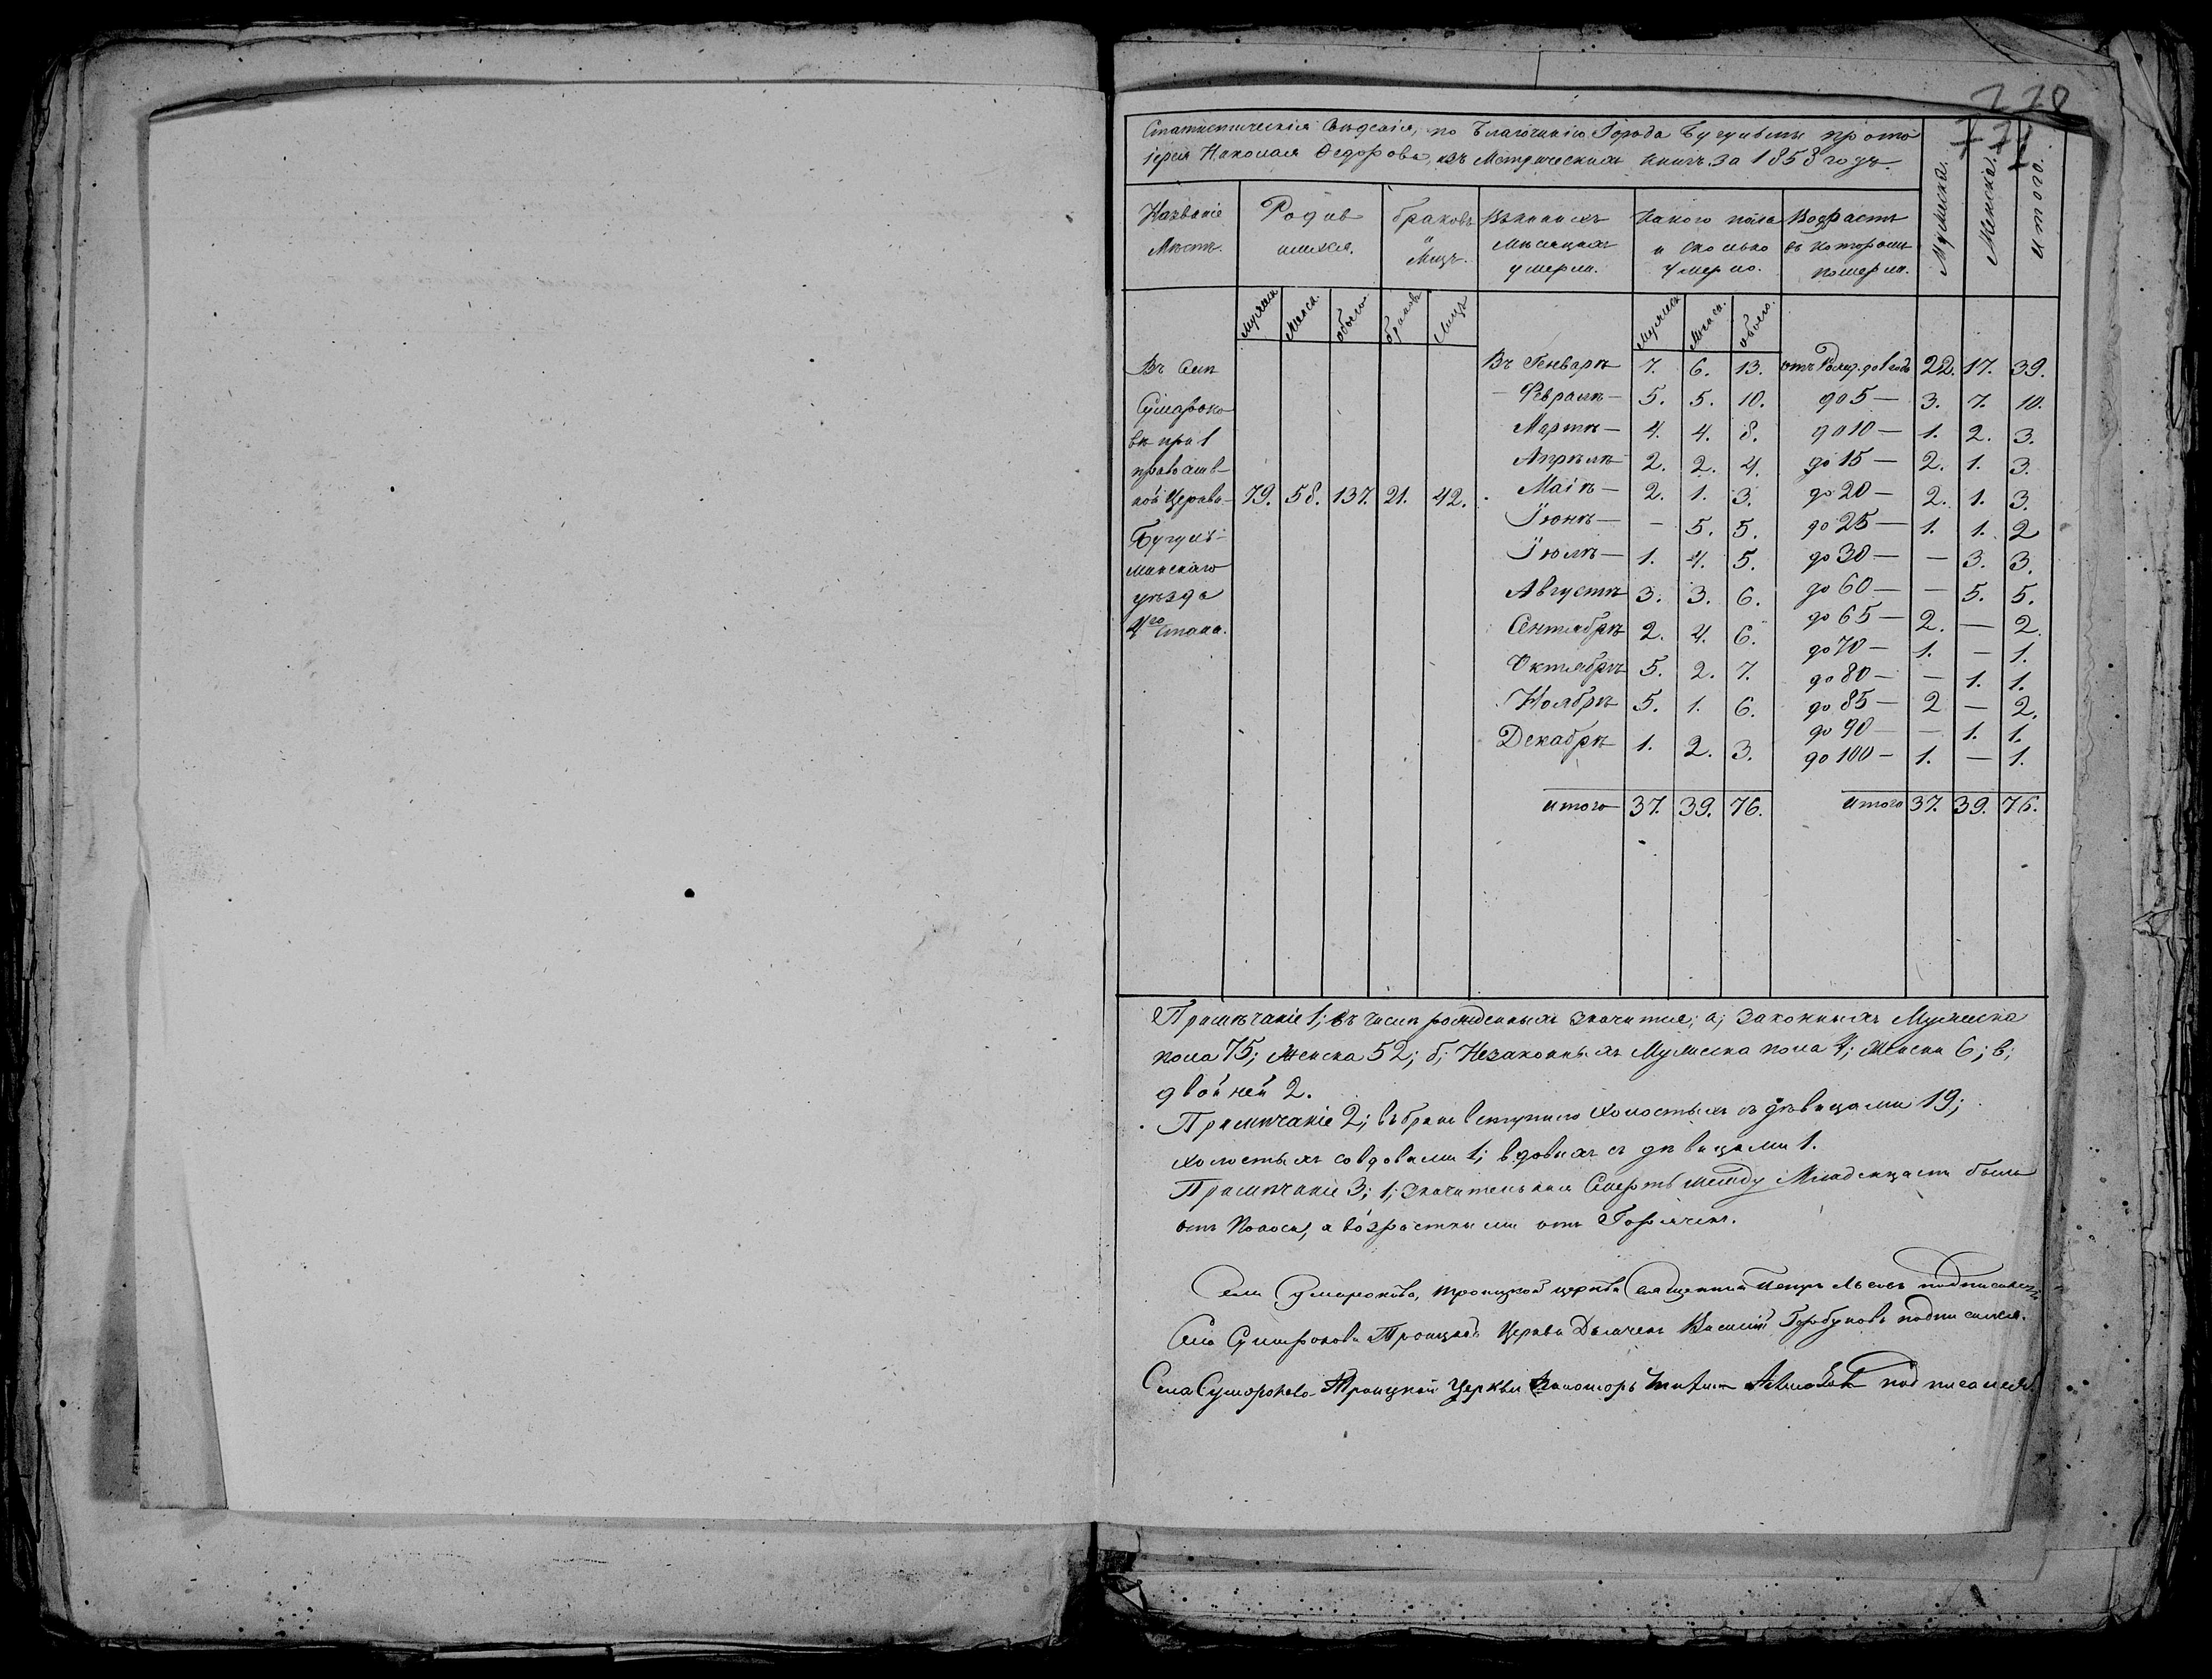 118
Статистическія Свѣденія, по Благочинію Города Бугульмы прото
іерея Николая Ѳедорова, изъ Метрическихъ книгъ за 1858 годъ.
Мужска. Женска. Итого.
Названіе Родив Браковъ Въ какихъ Какого пола Возрастъ
Мѣстъ. шихся. и мѣсяцахъ и сколько въ которомъ
Лицъ. умерли. умерло. померли.
Мужска Женск. обоего браковъ Лицъ Мужска Женск. обоего.
Въ Селѣ Въ Генварѣ 7. 6. 13. отъ Рожд. до 1 года 22. 17. 39.
Сумароко — Февралѣ — 5. 5. 10. до 5 — 3. 7. 10.
вѣ при 1 Мартѣ — 4. 4. 8. до 10 — 1. 2. 3.
православ Апрѣлѣ 2. 2. 4. до 15 — 2. 1. 3.
ной Церкви — 79. 58. 137. 21. 42. Маіѣ — 2. 1. 3. до 20 — 2. 1. 3.
Бугуль- Іюнѣ — — 5. 5. до 25 — 1. 1. 2
минскаго Іюлѣ — 1. 4. 5. до 30 — — 3. 3.
уѣзда Августѣ 3. 3. 6. до 60 — — 5. 5.
4го Стана. Сентябрѣ 2. 4. 6. до 65 — 2. — 2.
Октябрѣ 5. 2. 7. до 70 — 1. — 1.
до 80 — — 1. 1.
Ноябрѣ 5. 1. 6. до 85 — 2 — 2.
до 90 — — 1. 1.
Декабрѣ 1. 2. 3. до 100 — 1. — 1.
итого 37. 39. 76. итого 37. 39. 76.
Примѣчаніе 1; въ числѣ рожденныхъ значится; а; Законныхъ Мужеска
пола 75; Женска 52; б; Незаконныхъ Мужеска пола 4; Женска 6; в;
двойней 2.
Примѣчаніе 2; въ бракъ вступило холостыхъ съ дѣвицами 19;
холостыхъ со вдовами 1; вдовыхъ съ дѣвицами 1.
Примѣчаніе 3; 1; Значительная Смерть между Младенцами была
отъ Поноса, а возрастными отъ Горячки.
Села Сумарокова, Троицкой церкви Священникъ Петръ подписался
Села Сумарокова Троицкой Церкви Дьячекъ Василій Горбуновъ подписался.
Села Сумарокова Троицкой Церкви Пономорь подписался.